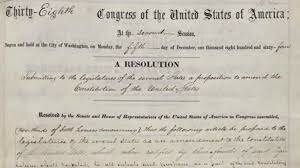 Thirty-Eighth Congress of the United States of America;
At the second Session,
Begun and held at the City of Washington, on Monday, the fifth day of December, one thousand eight hundred and sixty-four
A RESOLUTION
Submitting to the legislatures of the several States a proposition to amend the
Constitution of the United States.
Resolved by the Senate and House of Representatives of the United States of America in Congress assembled,
(two thirds of both houses concurring) that the following article be proposed to the
legislatures of the several States as an amendment to the constitution of